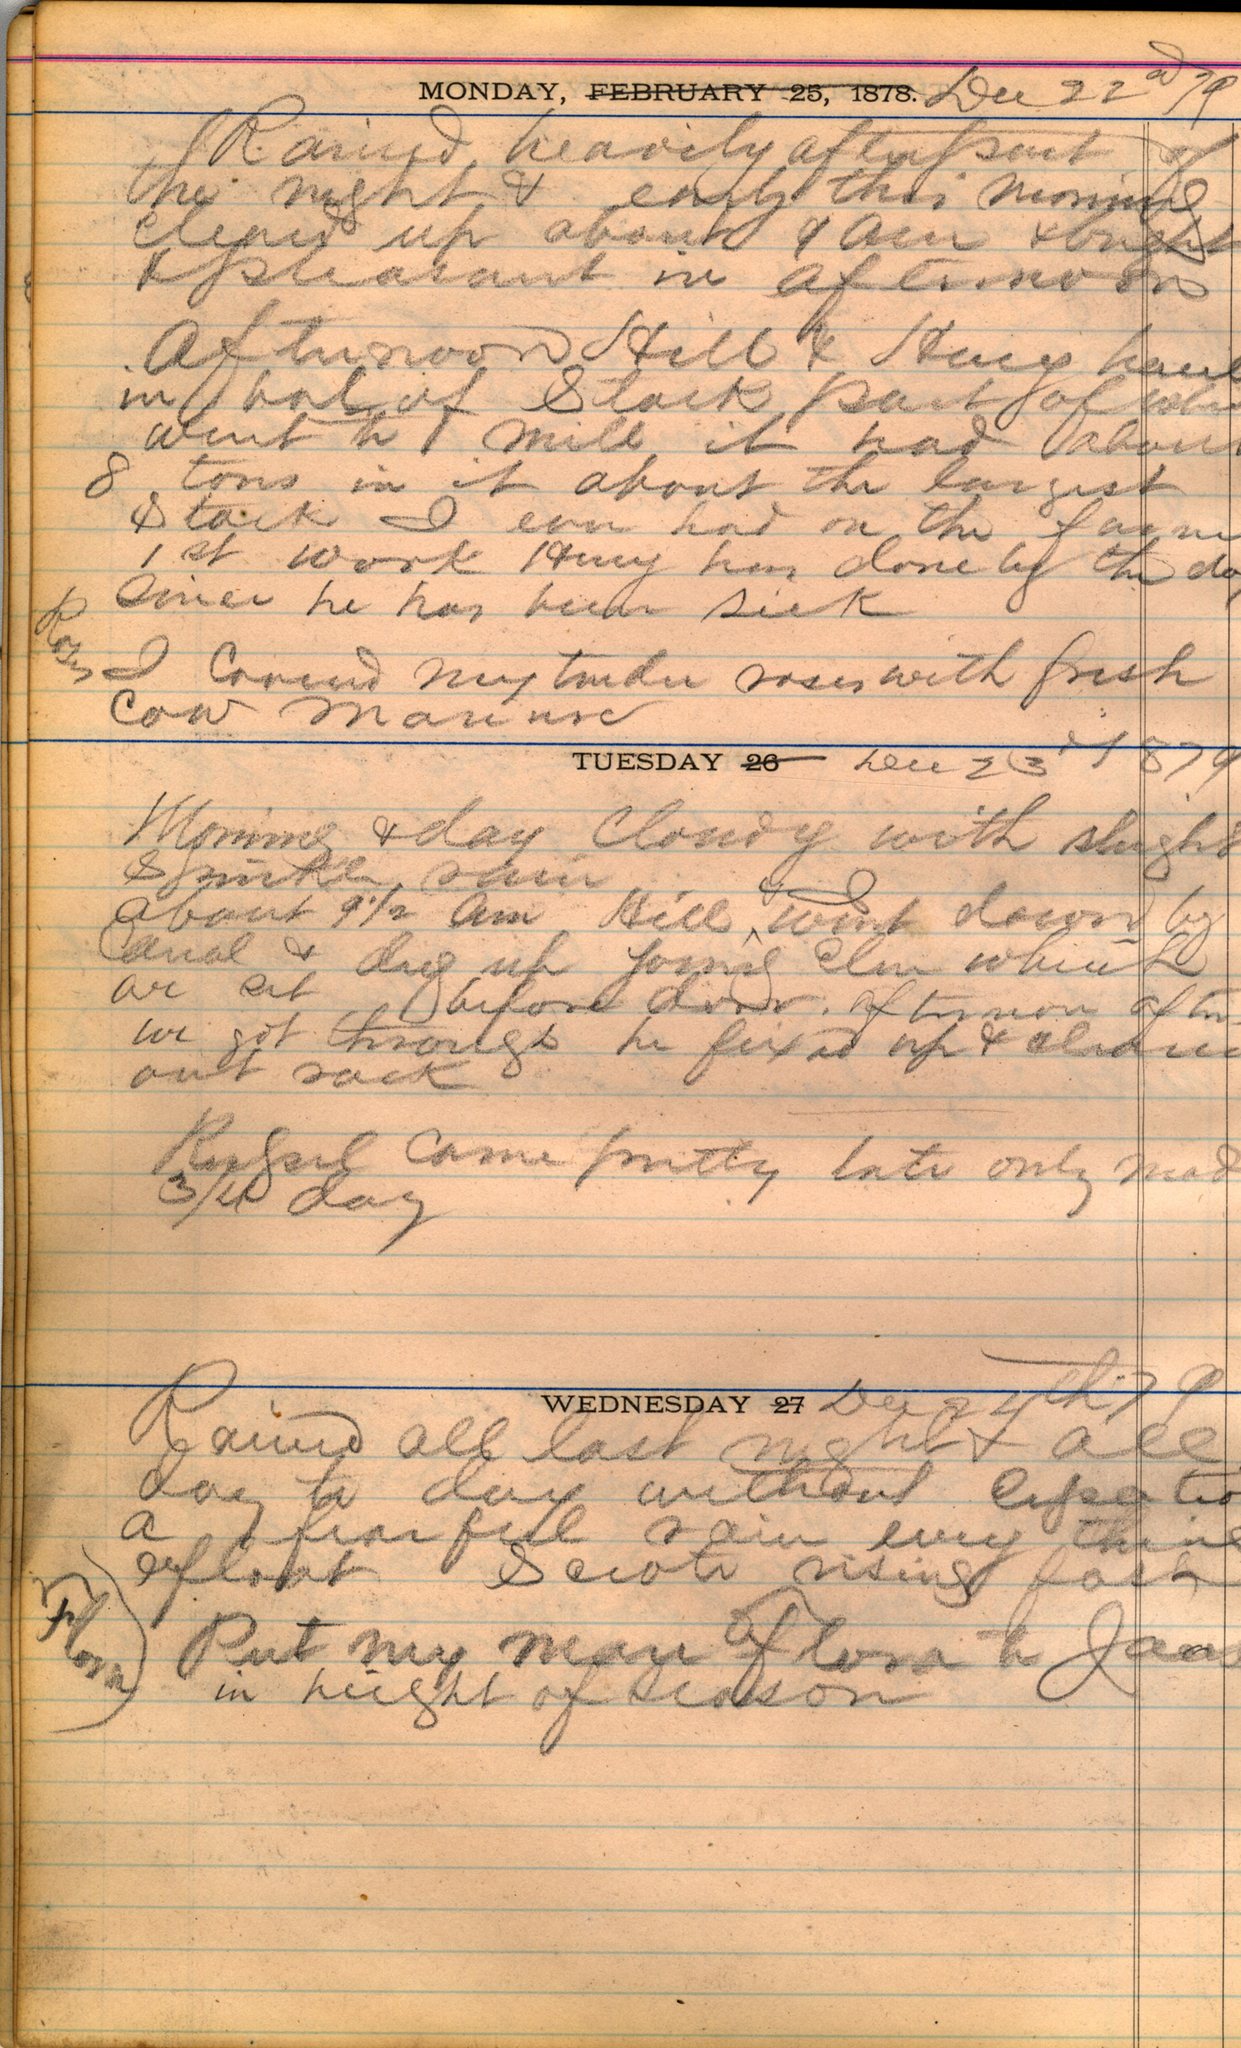 MONDAY, FEBRUARY 25, 1878. Dec 22nd 79
Rained heavily after part of
the night & early this morning
cleard up about 9 am & bright
& pleasant in afternoon
Afternoon Hill & Huey haul
in bal of Stack part of whi
went to mill it had about
8 tons in it about the largest
Stack I ever had on the farm
1st work Huey has done by the da
since he has been sick
Roses
I Covered my tender roses with fresh
Cow Manure
TUESDAY 26 Dec 23rd 1879
Morning & day Cloudy with slight
Sprinkle rain
about 9 1/2 am Hill & I went down by
Canal & dug up young Elm which
we set before door. afternoon after
we got through he fixed up & cleaned
out rack
came pretty late only mad
3/4 day
WEDNESDAY 27 Dec 24th 79
Rained all last night & all
day to day without
a fearful rain every thing
afloat Scioto rising fast
Flora
Put my mare Flora to Jaas
in height of season